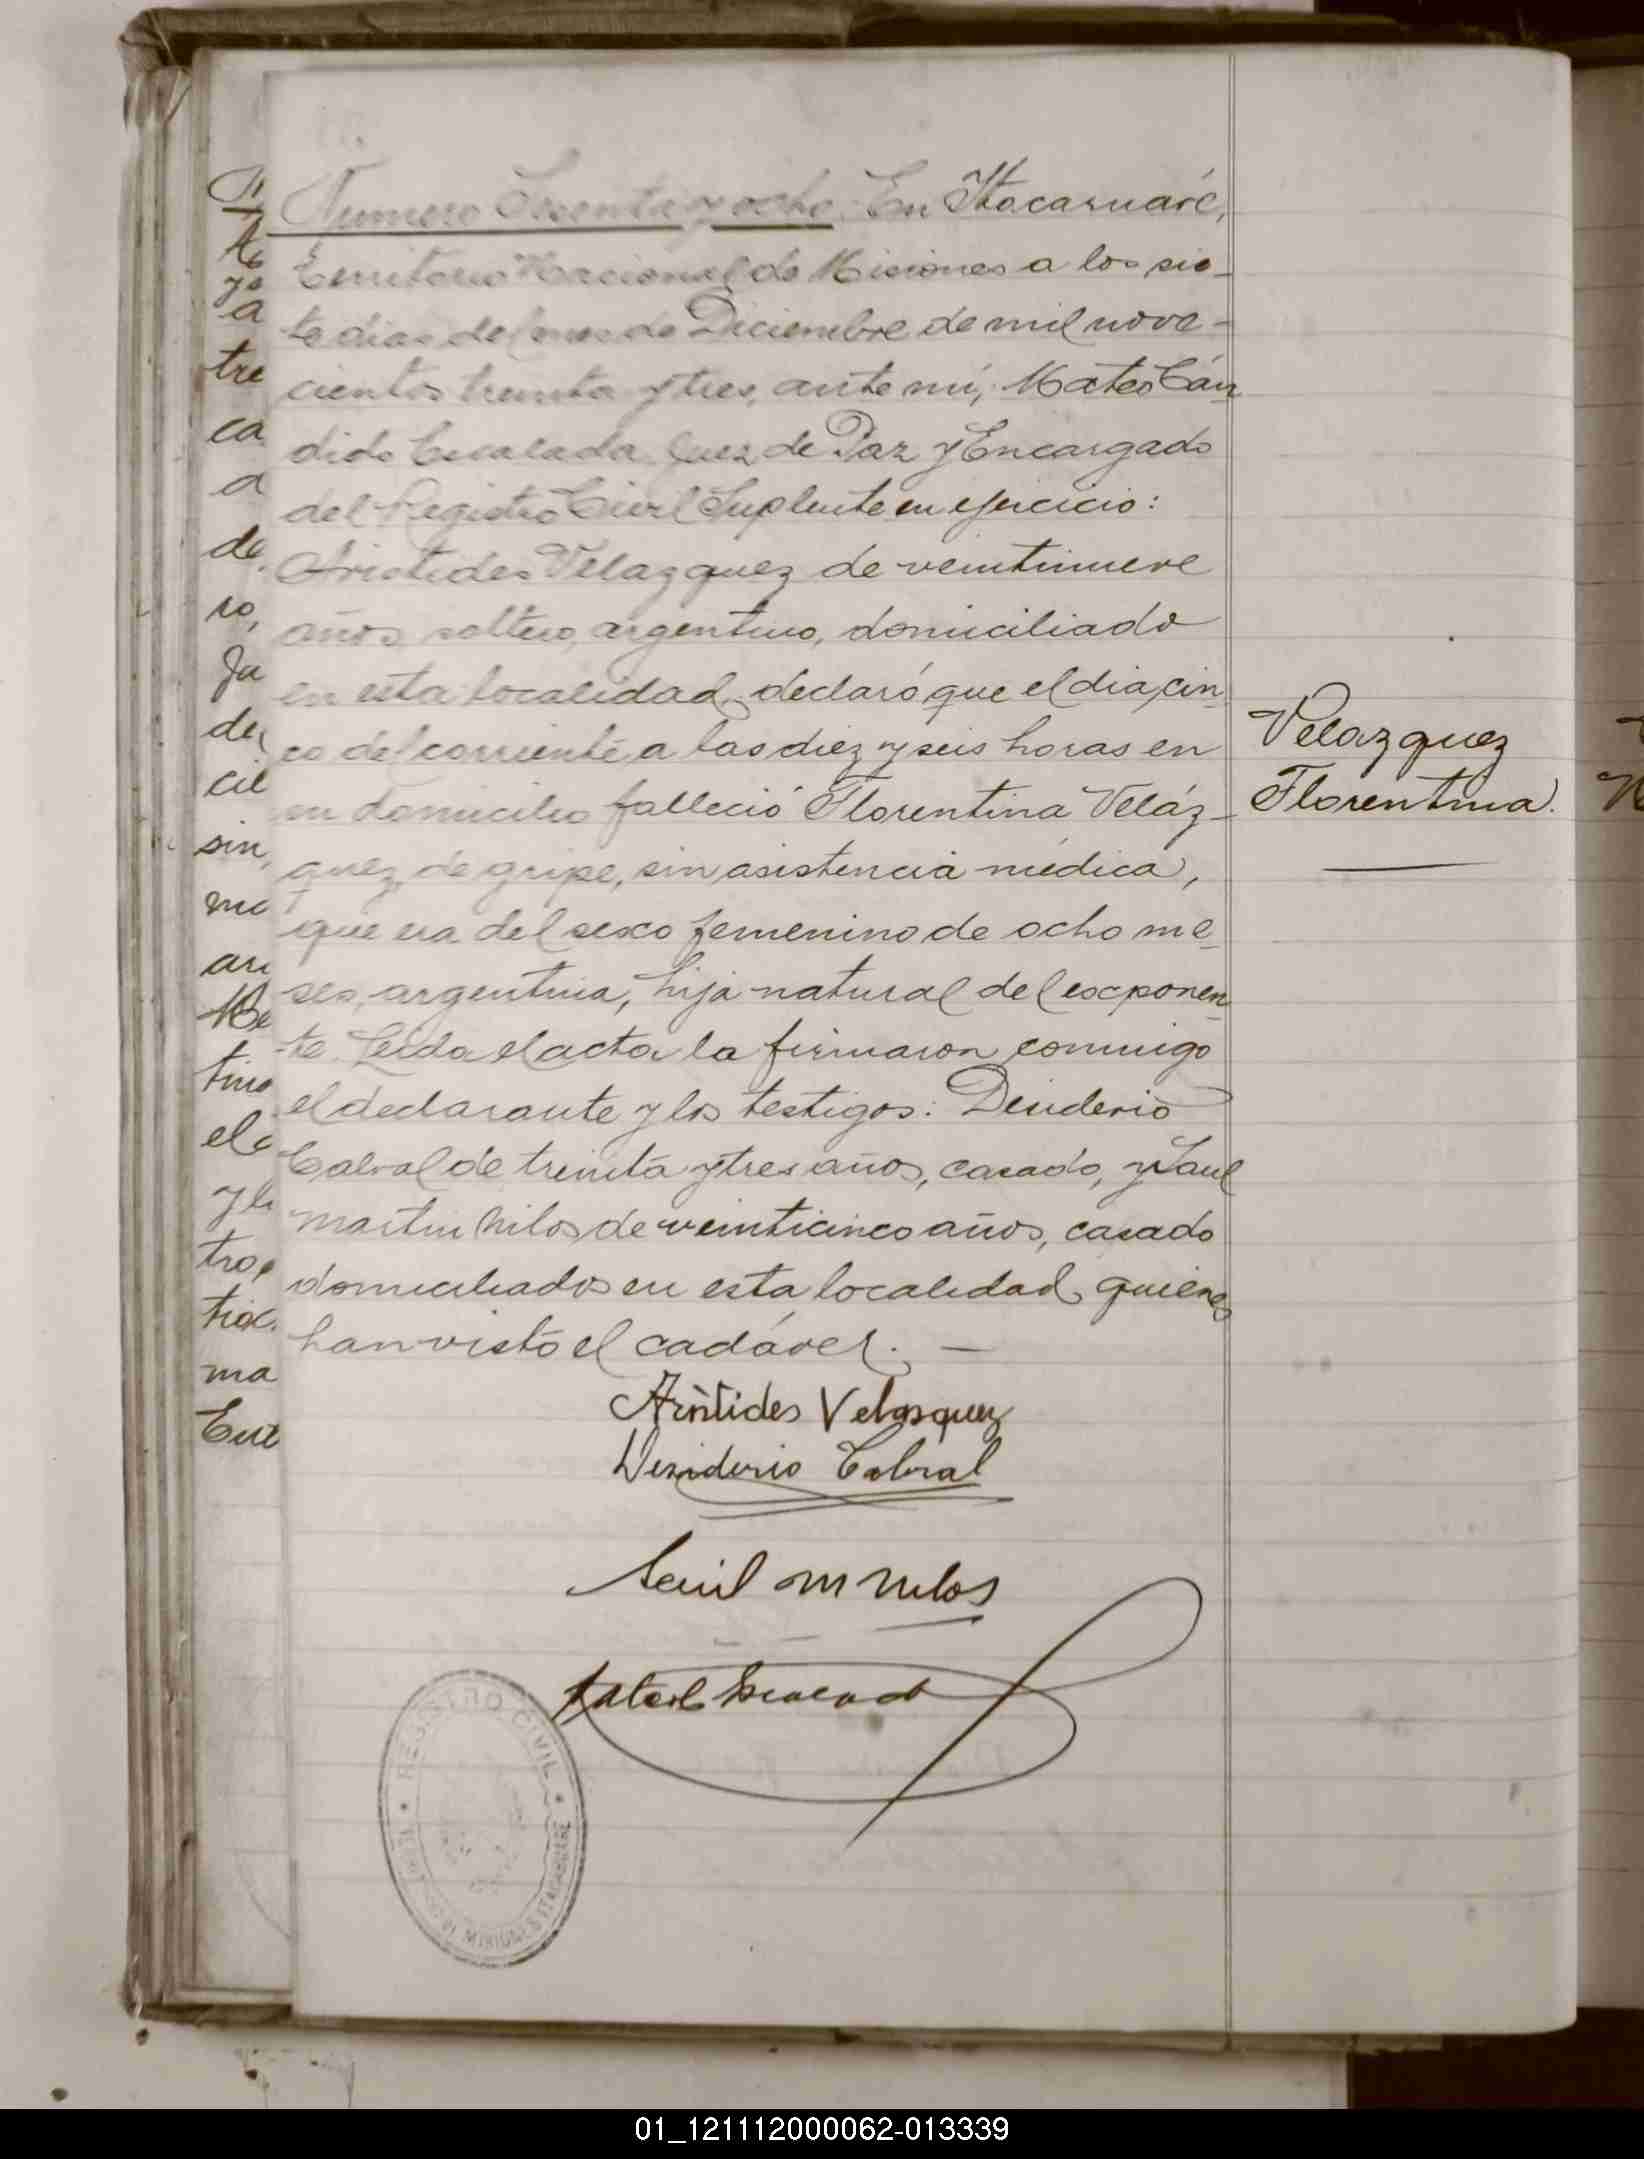 Numero Sesenta y ocho. En Itacaruaré,
Territorio Nacional de Misiones a los sie-
te dias del mes de Diciembre de mil nove-
cientos treinta y tres, ante mí, Mateo Cán-
dido Escalada Juez de Paz y Encargado
del Registro Civil Suplente en ejercicio:
Aristides Velazquez de veintinueve
años, soltero, argentino, domiciliado
en esta localidad, declaró que el dia cin-
co del corriente a las diez y seis horas en
su domicilio falleció Florentina Veláz-
quez, de gripe, sin asistencia médica,
que era del sexo femenino de ocho me-
ses, argentina, hija natural del exponen-
te. Leida el acta la firmaron conmigo
el declarante y los testigos: Desiderio
Cabral de treinta y tres años, casado, y Saul
Martin Nilos, de veinticinco años, casado
domiciliados en esta localidad, quienes
han visto el cadáver. —
Velazquez
Florentina.
Aristides Velasquez
Desiderio Cabral
Saul M Nilos
REGISTRO CIVIL
MISIONES ITACARUARE
tre
ca
a
de
ro,
Ju
de
cil
sin,
tino
ma
01_121112000062-013339